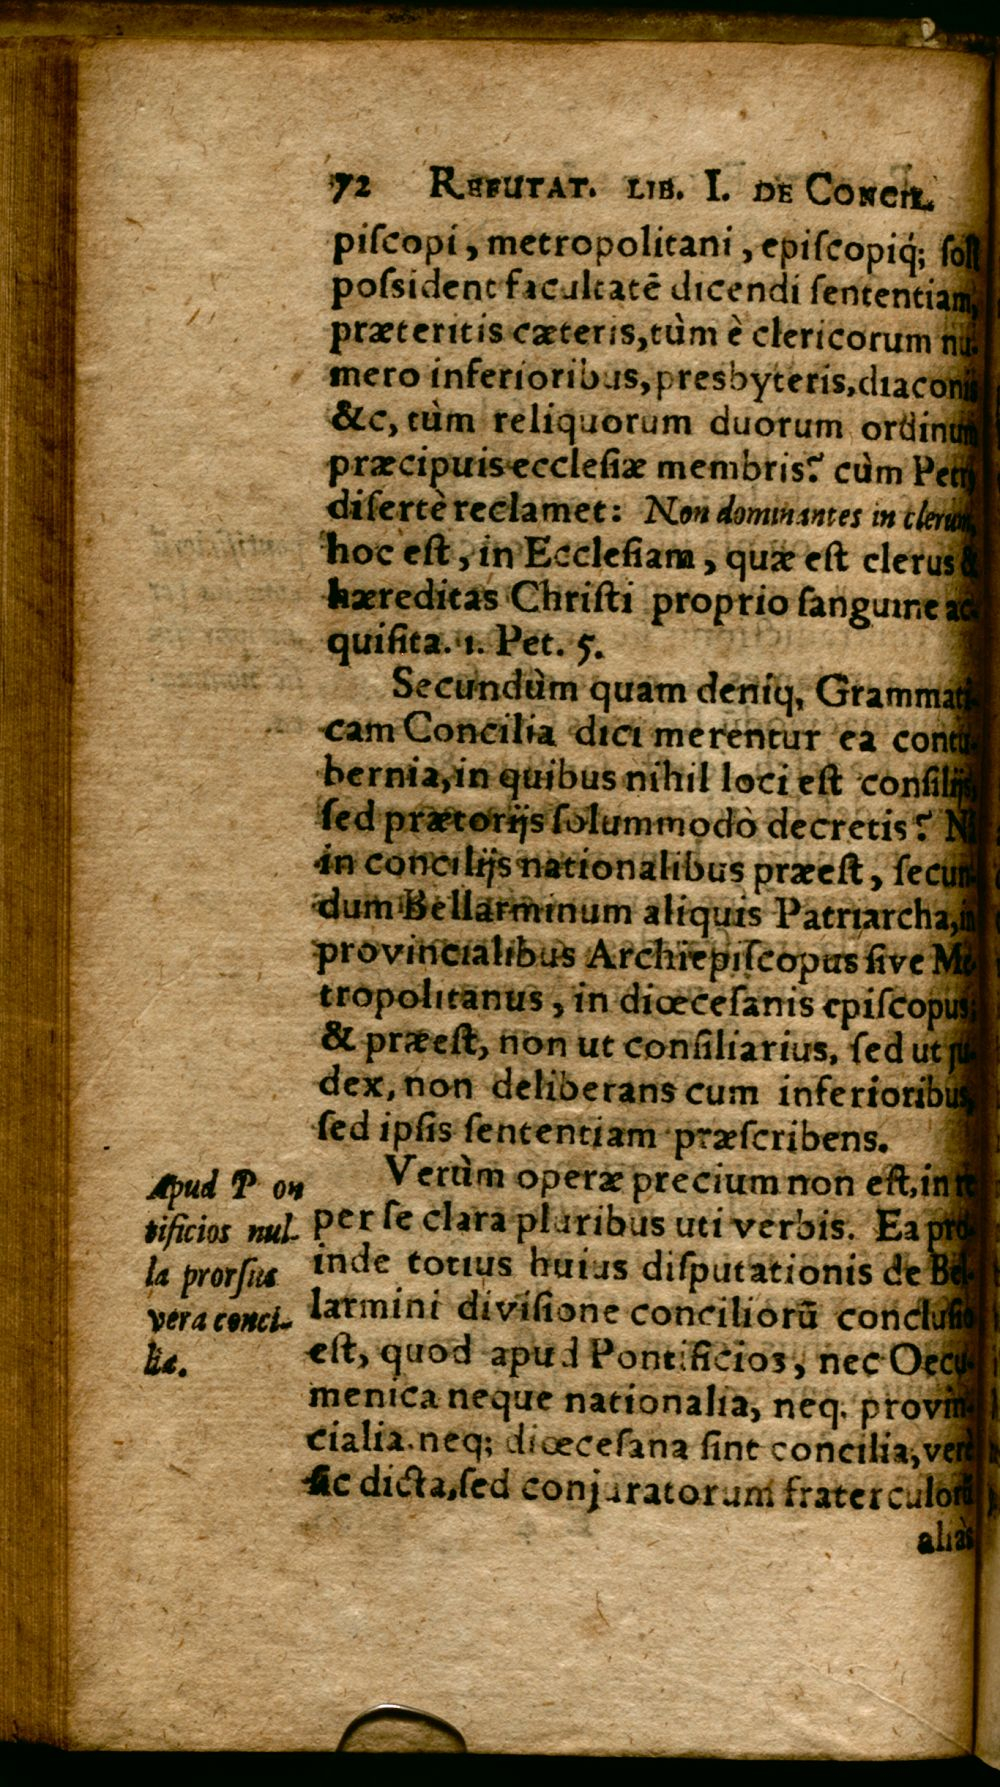 72 REFUTAT. LIB. I. DE CONCIL.
piſcopi, metropolitani, epiſcopiq́; ſoli
poſsident facultatē dicendi ſententiam,
præteritis cæteris, tùm è clericorum nu-
mero inferioribus, presbyteris, diaconis
&c, tùm reliquorum duorum ordinum
præcipuis eccleſiæ membris? cùm Petrꝰ
diſertè reclamet: Non dominantes in clerum,
hoc eſt, in Eccleſiam, quæ eſt clerus &
hæreditas Chriſti proprio ſanguine ac-
quiſita. 1. Pet. 5.
Secundùm quam deniq, Grammati-
cam Concilia dici merentur ea contu-
bernia, in quibus nihil loci eſt conſilijs,
ſed prætorijs ſolummodò decretis? Nã
in concilijs nationalibus præeſt, ſecun-
dum Bellarminum aliquis Patriarcha, in
provincialibus Archiepiſcopus ſive Me-
tropolitanus, in diœceſanis epiſcopus;
& præeſt, non ut conſiliarius, ſed ut ju-
dex, non deliberans cum inferioribus,
ſed ipſis ſententiam præſcribens.
Verùm operæ precium non eſt, in re
per ſe clara pluribus uti verbis. Ea pro-
inde totius huius diſputationis de Bel-
larmini diviſione conciliorū concluſio
eſt, quod apud Pontificios, nec Oecu-
menica neque nationalia, neq. provin-
cialia. neq; diœceſana ſint concilia, verè
ſic dicta, ſed conjuratorum fraterculorũ
aliàs
Apud P on
tificios nul-
la prorſus
vera conci-
lia.